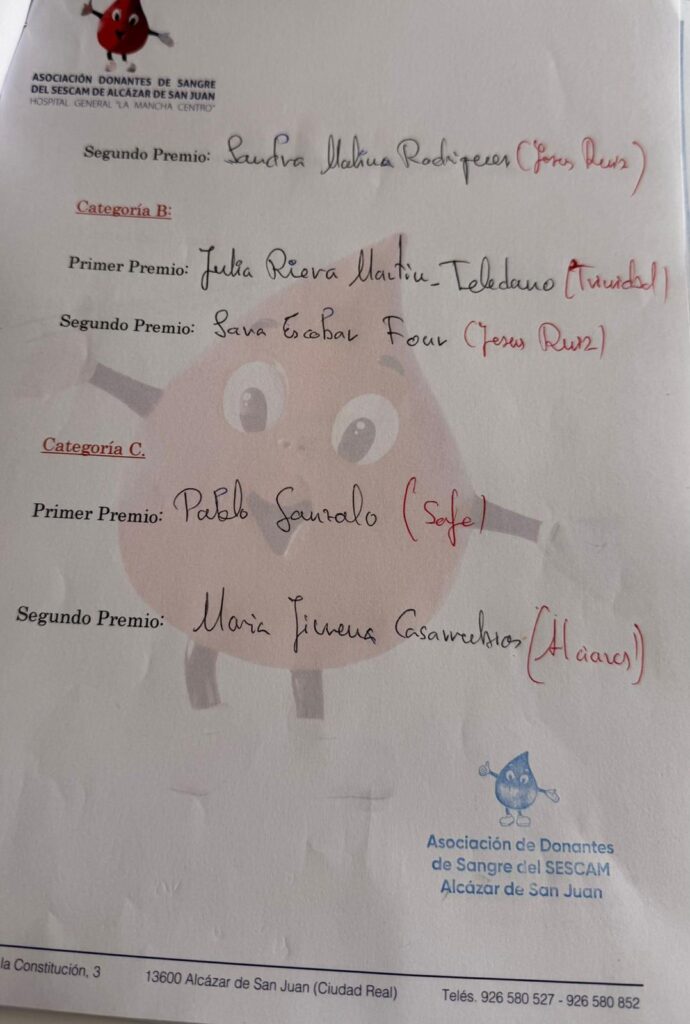 ASOCIACIÓN DONANTES DE SANGRE
DEL SESCAM DE ALCÁZAR DE SAN JUAN
HOSPITAL GENERAL "LA MANCHA CENTRO"
Segundo Premio: Sandra Molina Rodrigues (Jesus Ruiz)
Categoría B:
Primer Premio: Julia Riera Martin-Toledano (Trinidad)
Segundo Premio: Sara Escobar (Jesus Ruiz)
Categoría C.
Primer Premio: Pablo (Safe)
Segundo Premio: Maria Jimena Casarrubios
Asociación de Donantes
de Sangre del SESCAM
Alcázar de San Juan
la Constitución, 3 13600 Alcázar de San Juan (Ciudad Real) Telés. 926 580 527 - 926 580 852